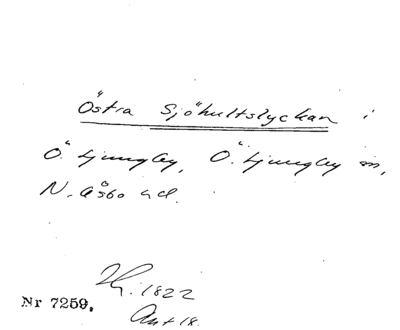 Östra Sjöhultslyckan i
Ö. Ljungby, Ö. Ljungby sn,
N. Åsbo hd.
1822
Nr 7259.
Akt 18.